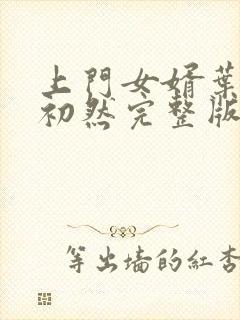 上門女婿葉
初然完整版
等出墙的紅杏